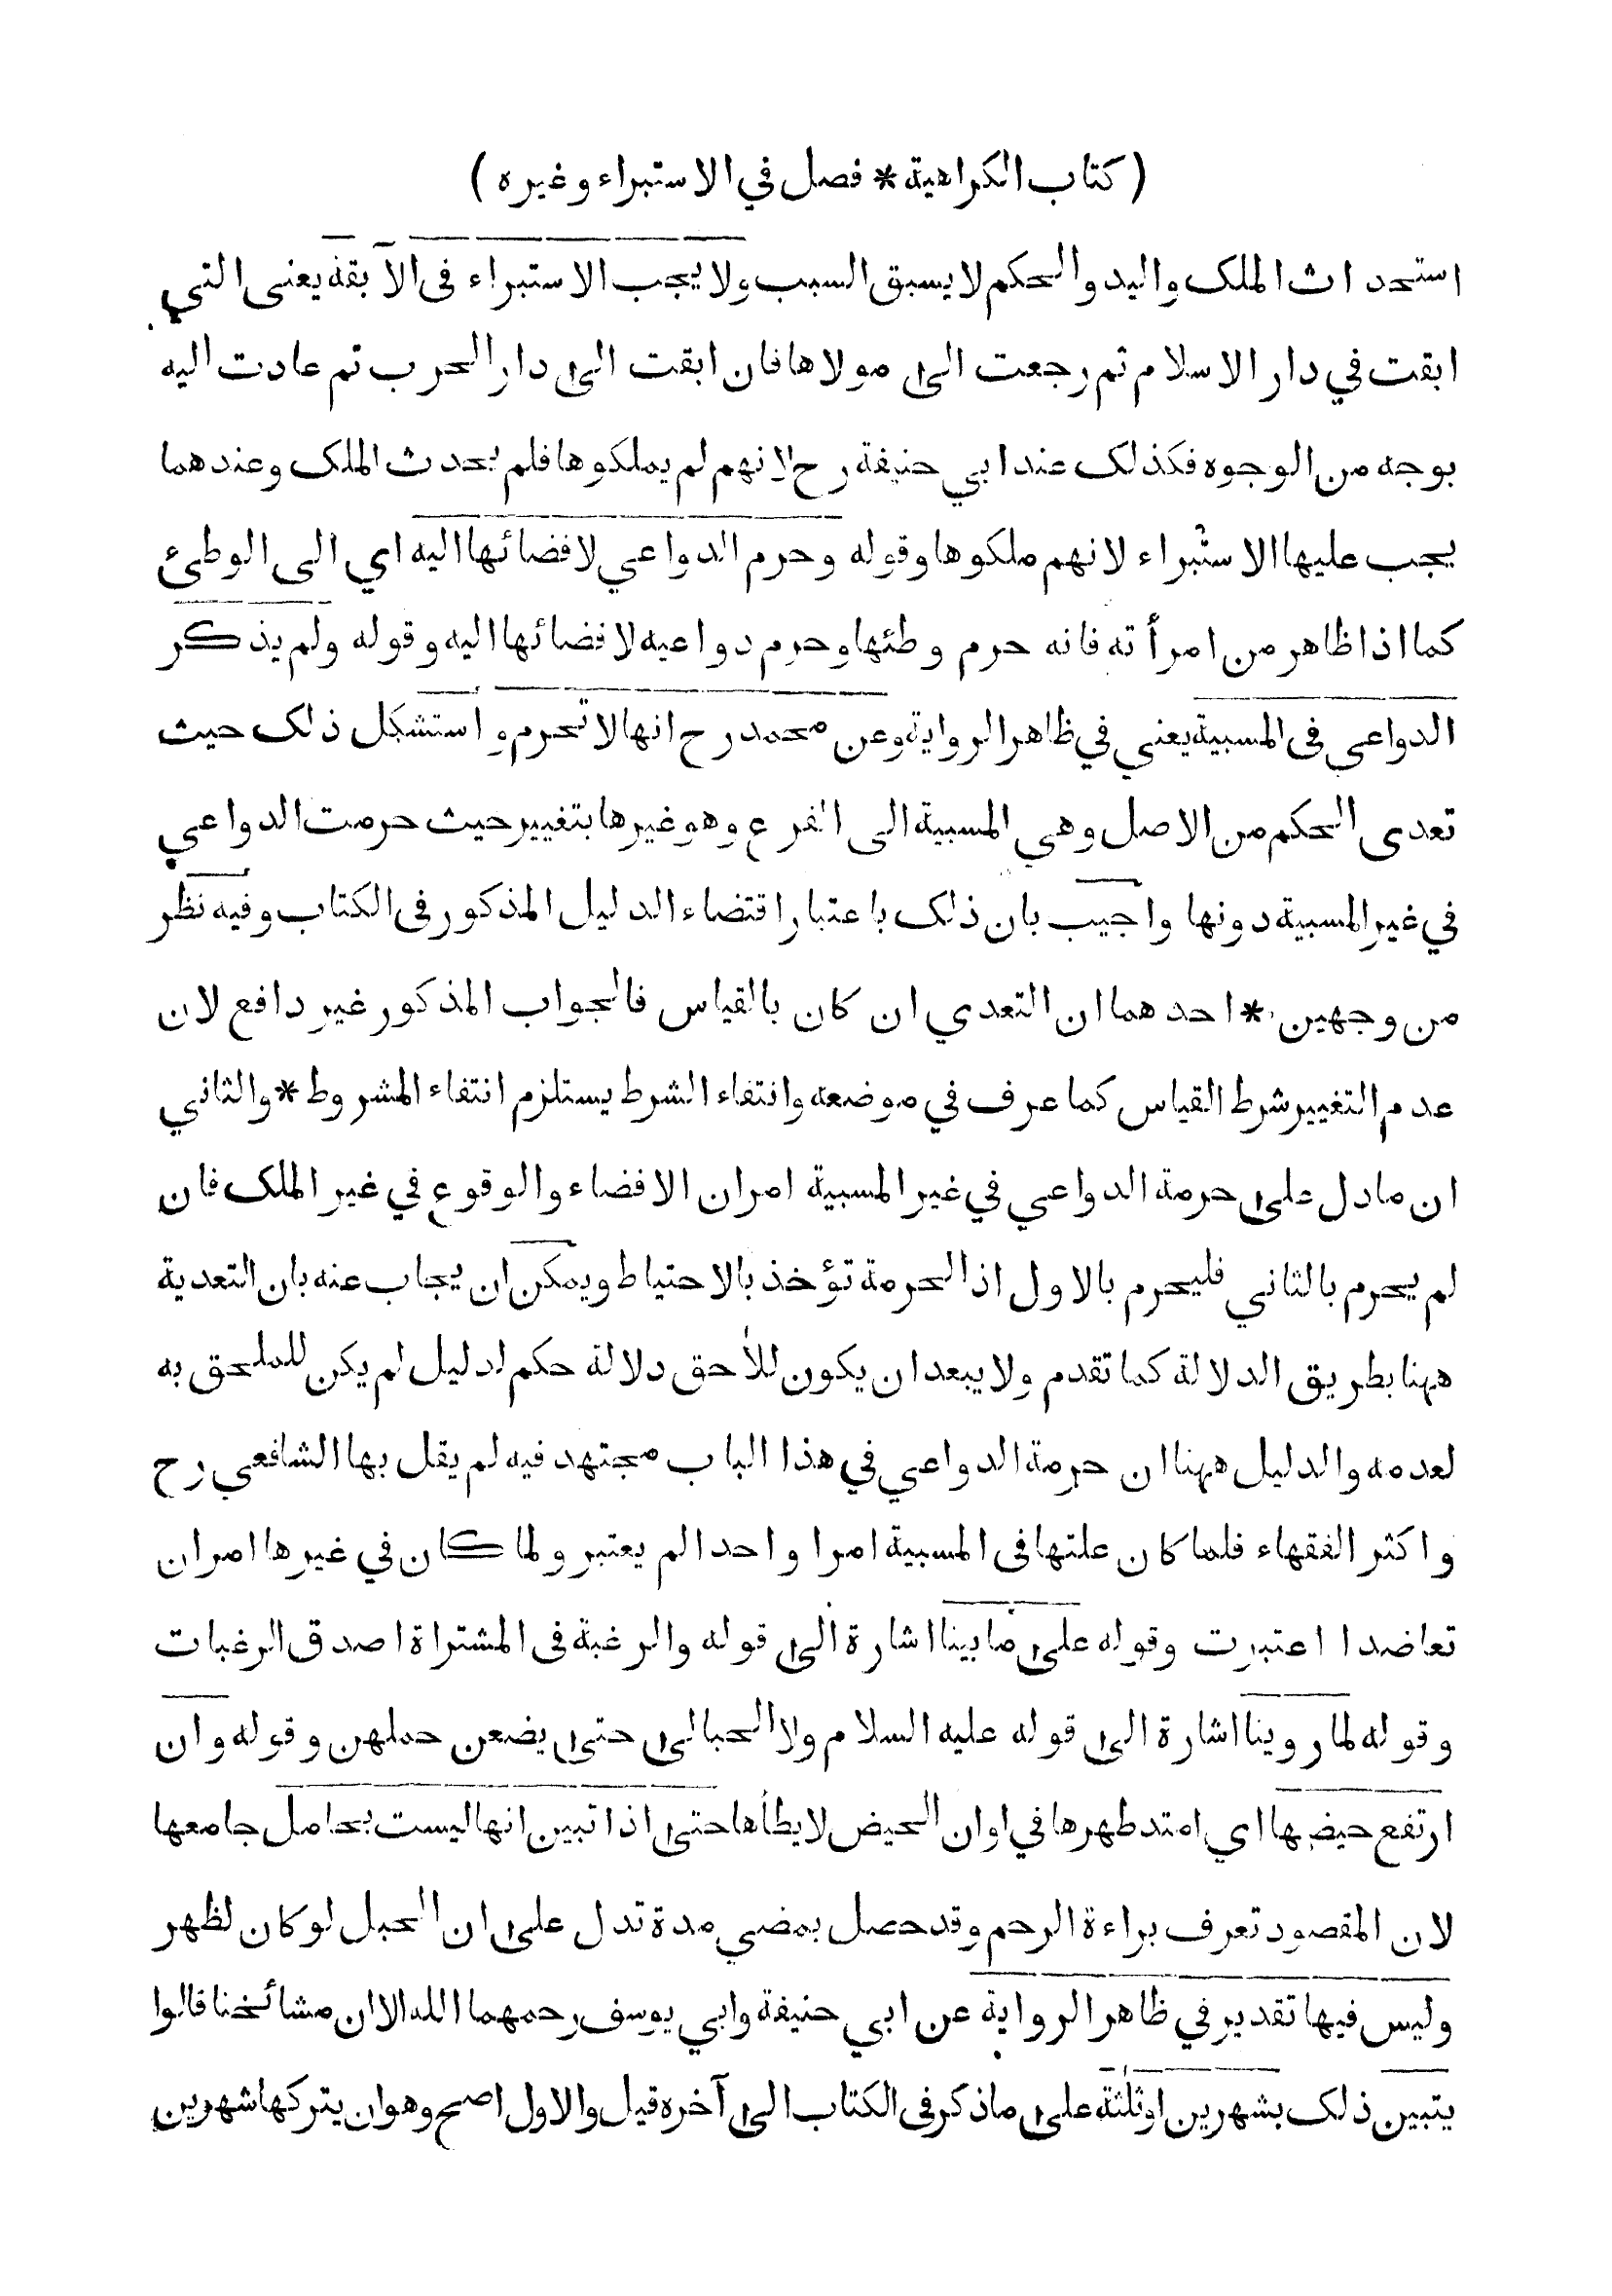 ( كتاب الكراهية * فصل في الاستبراء وغيره )
استحداث الملك واليد والحكم لا يسبق السبب ولا يجب الاستبراء فى الآبقة يعنى التي
ابقت في دار الاسلام ثم رجعت الى مولاها فان ابقت الى دار الحرب ثم عادت اليه
بوجه من الوجوه فكذلك عند ابي حنيفة رح لانهم لم يملكوها فلم يحدث الملك وعندهما
يجب عليها الاستبراء لانهم ملكوها وقوله وحرم الدواعي لافضائها اليه اي الى الوطئ
كما اذا ظاهر من امرأته فانه حرم وطئها وحرم دواعيه لافضائها اليه وقوله ولم يذكر
الدواعي فى المسبية يعني في ظاهر الرواية وعن محمد رح انها لا تحرم واستشكل ذلك حيث
تعدى الحكم من الاصل وهي المسبية الى الفرع وهو غيرها بتغيير حيث حرمت الدواعي
في غير المسبية دونها واجيب بان ذلك باعتبار اقتضاء الدليل المذكور فى الكتاب وفيه نظر
من وجهين * احدهما ان التعدي ان كان بالقياس فالجواب المذكور غير دافع لان
عدم التغيير شرط القياس كما عرف في موضعه وانتفاء الشرط يستلزم انتفاء المشروط * والثاني
ان مادل على حرمة الدواعي في غير المسبية امران الافضاء والوقوع في غير الملك فان
لم يحرم بالثاني فليحرم بالاول اذ الحرمة تؤخذ بالاحتياط ويمكن ان يجاب عنه بان التعدية
ههنا بطريق الدلالة كما تقدم ولا يبعد ان يكون للاحق دلالة حكم لدليل لم يكن للملحق به
لعدمه والدليل ههنا ان حرمة الدواعي في هذا الباب مجتهد فيه لم يقل بها الشافعي رح
واكثر الفقهاء فلما كان علتها فى المسبية امرا واحدا لم يعتبر ولما كان في غيرها امران
تعاضدا اعتبرت وقوله على ما بينا اشارة الى قوله والرغبة فى المشتراة اصدق الرغبات
وقوله لما روينا اشارة الى قوله عليه السلام ولا الحبالى حتى يضعن حملهن وقوله وان
ارتفع حيضها اي امتد طهرها في اوان الحيض لا يطأها حتى اذا تبين انها ليست بحامل جامعها
لان المقصود تعرف براءة الرحم وقد حصل بمضي مدة تدل على ان الحبل لو كان لظهر
وليس فيها تقدير في ظاهر الرواية عن ابي حنيفة وابي يوسف رحمهما الله الا ان مشائخنا قالوا
يتبين ذلك بشهرين او ثلثة على ما ذكر فى الكتاب الى آخره قيل والاول اصح وهو ان يتركها شهرين